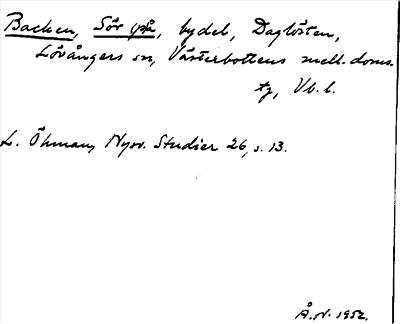 Backen, Sör på, bydel, Daglösten,
Lövångers sn, Västerbottens mell. doms-
tg, Vb. l.
L. Öhman, Nysv. Studier 26, s. 13.
Å.N. 1952.